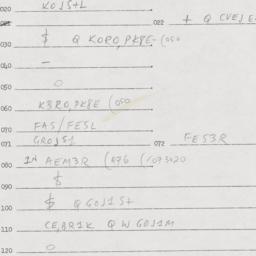 020 KOJS+L
022 + Q CVEJE
030 $ Q KORO,PK8E- (050
040 -
050 O
060 K8RO,PK8E (050
070 FAS/FESL
071 GROJS1 072 FE53R
080 IN AEM3R (076 (
090 $
100 $ Q GOJ1S+
110 CE,BR1K Q W GOJ1M
120 O